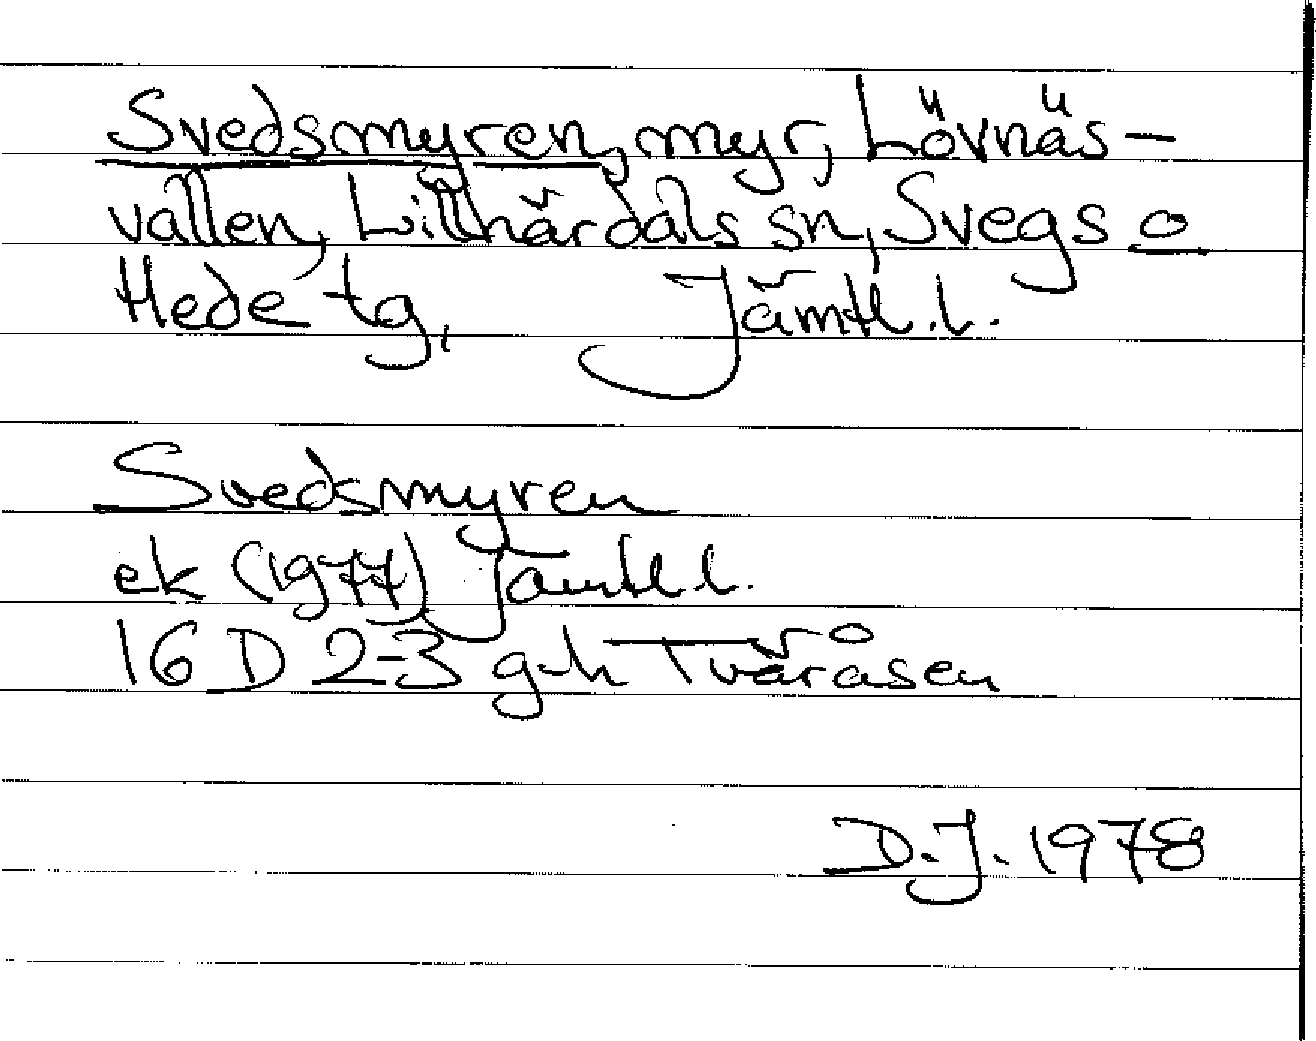 Svedsmyren, myr, Lövnäs-
vallen, Lillhärdals sn, Svegs o
Hede tg, Jämtl. l.
Svedsmyren
ek (1977) Jämtl l.
16 D 2-3 g-h Tväråsen
D.J. 1978